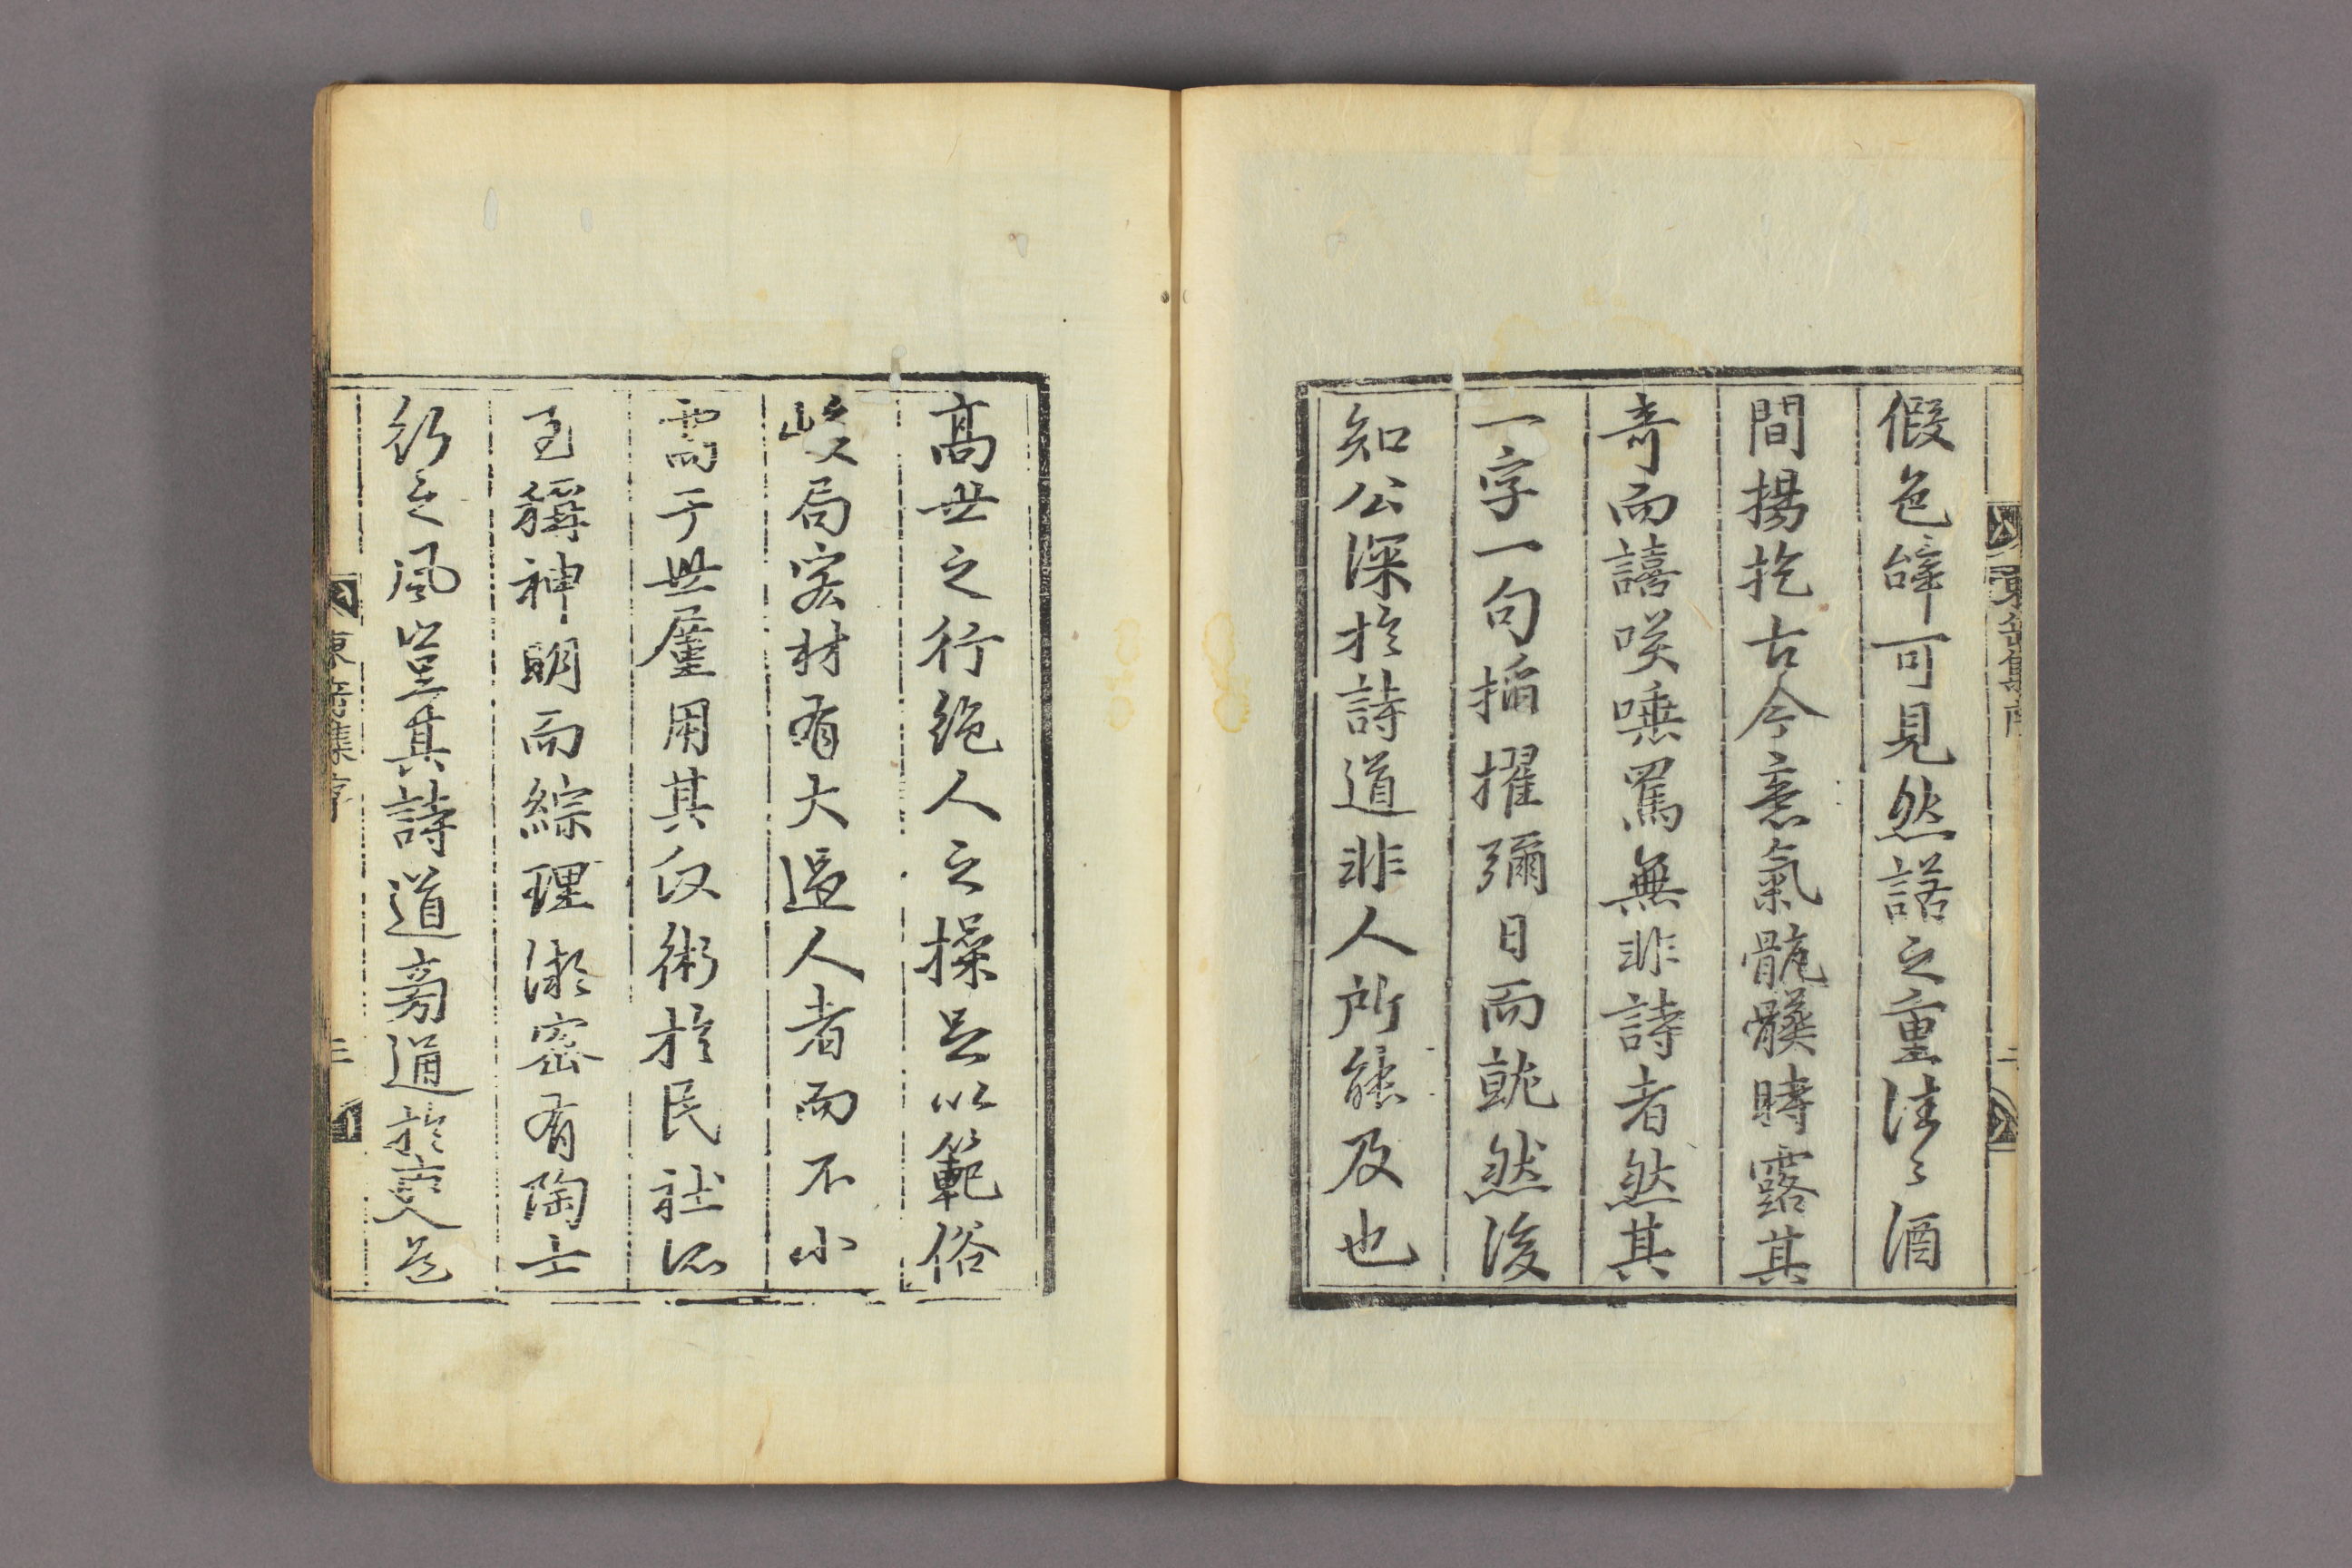 東岳集序
二
假色辭可見然諾之重往〻酒
間揚扢古今意氣骯髒時露其
奇而譆咲唾罵無非詩者然其
一字一句搯擢彌日而就然後
知公深於詩道非人所能及也
高世之行絶人之操足以範俗
峻局宏材有大過人者而不小
需于世厪用其仅術於民社所
至稱神明而綜理微密有陶士
行之風豈其詩道旁通於吏道
東岳集序
三